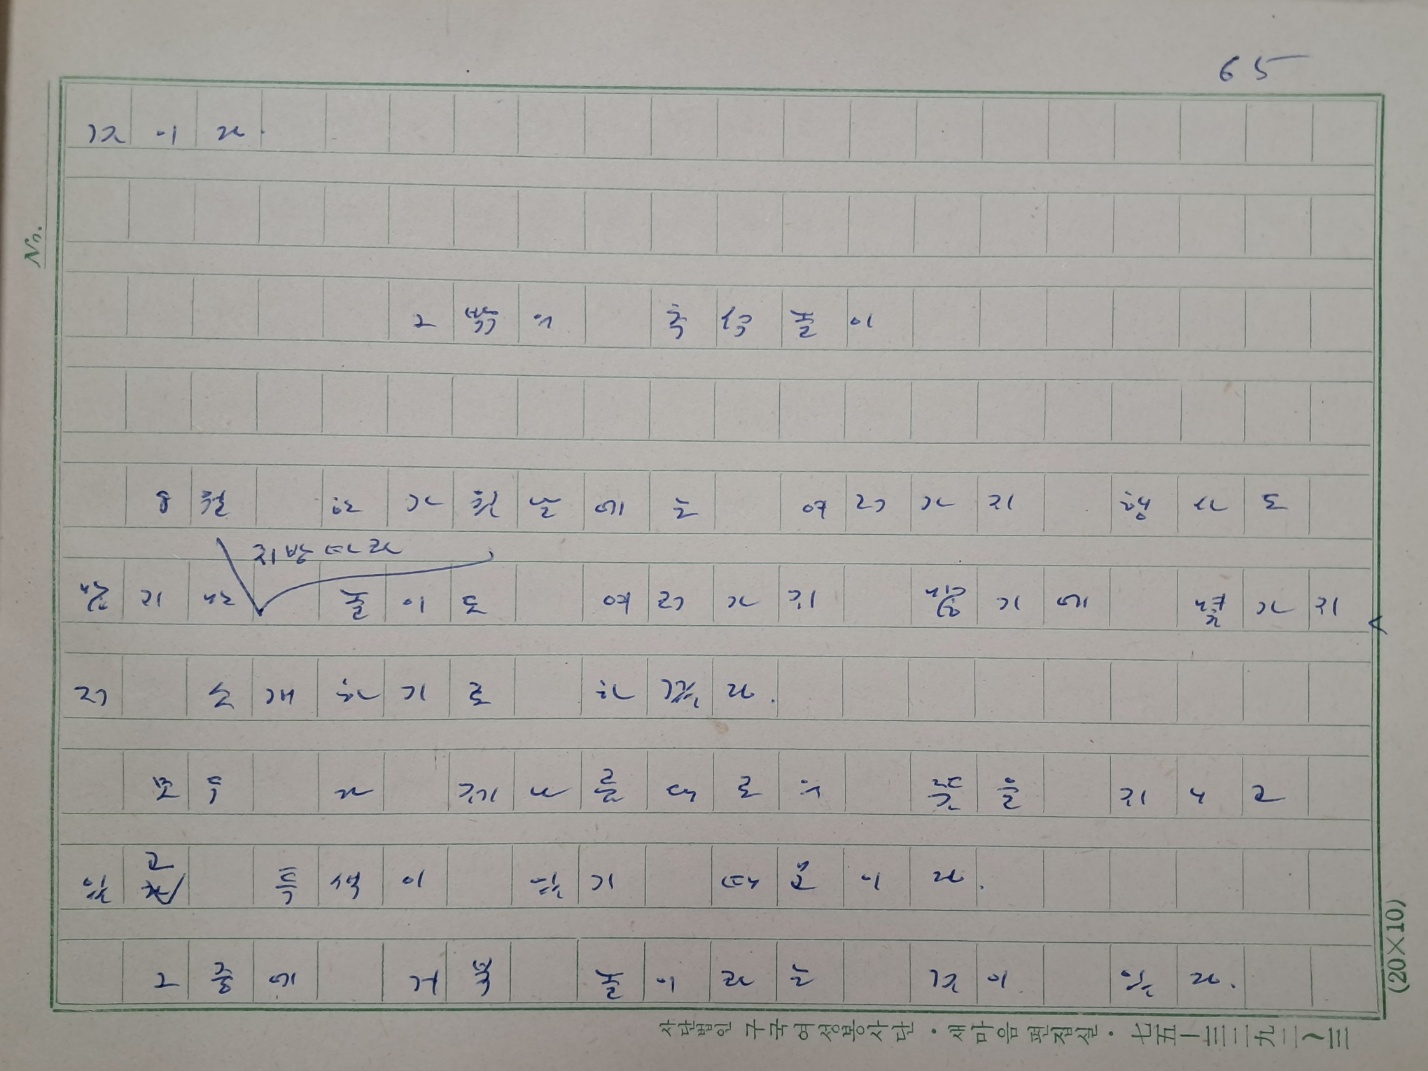 65
것이다.
그 밖의 추석놀이
8월 한가윗날에는 여러가지 행사도
지방따라
많지만 놀이도 여러가지 많기에 몇가지
만 소개하기로 하겠다.
모두 다 제나름대로의 뜻을 지니고
있고 특색이 있기 때문이다.
그 중에 거북 놀이라는 것이 있다.
No.
(20×10)
사단법인 구국여성봉사단·새마음편집실·七五―三三二九二~三